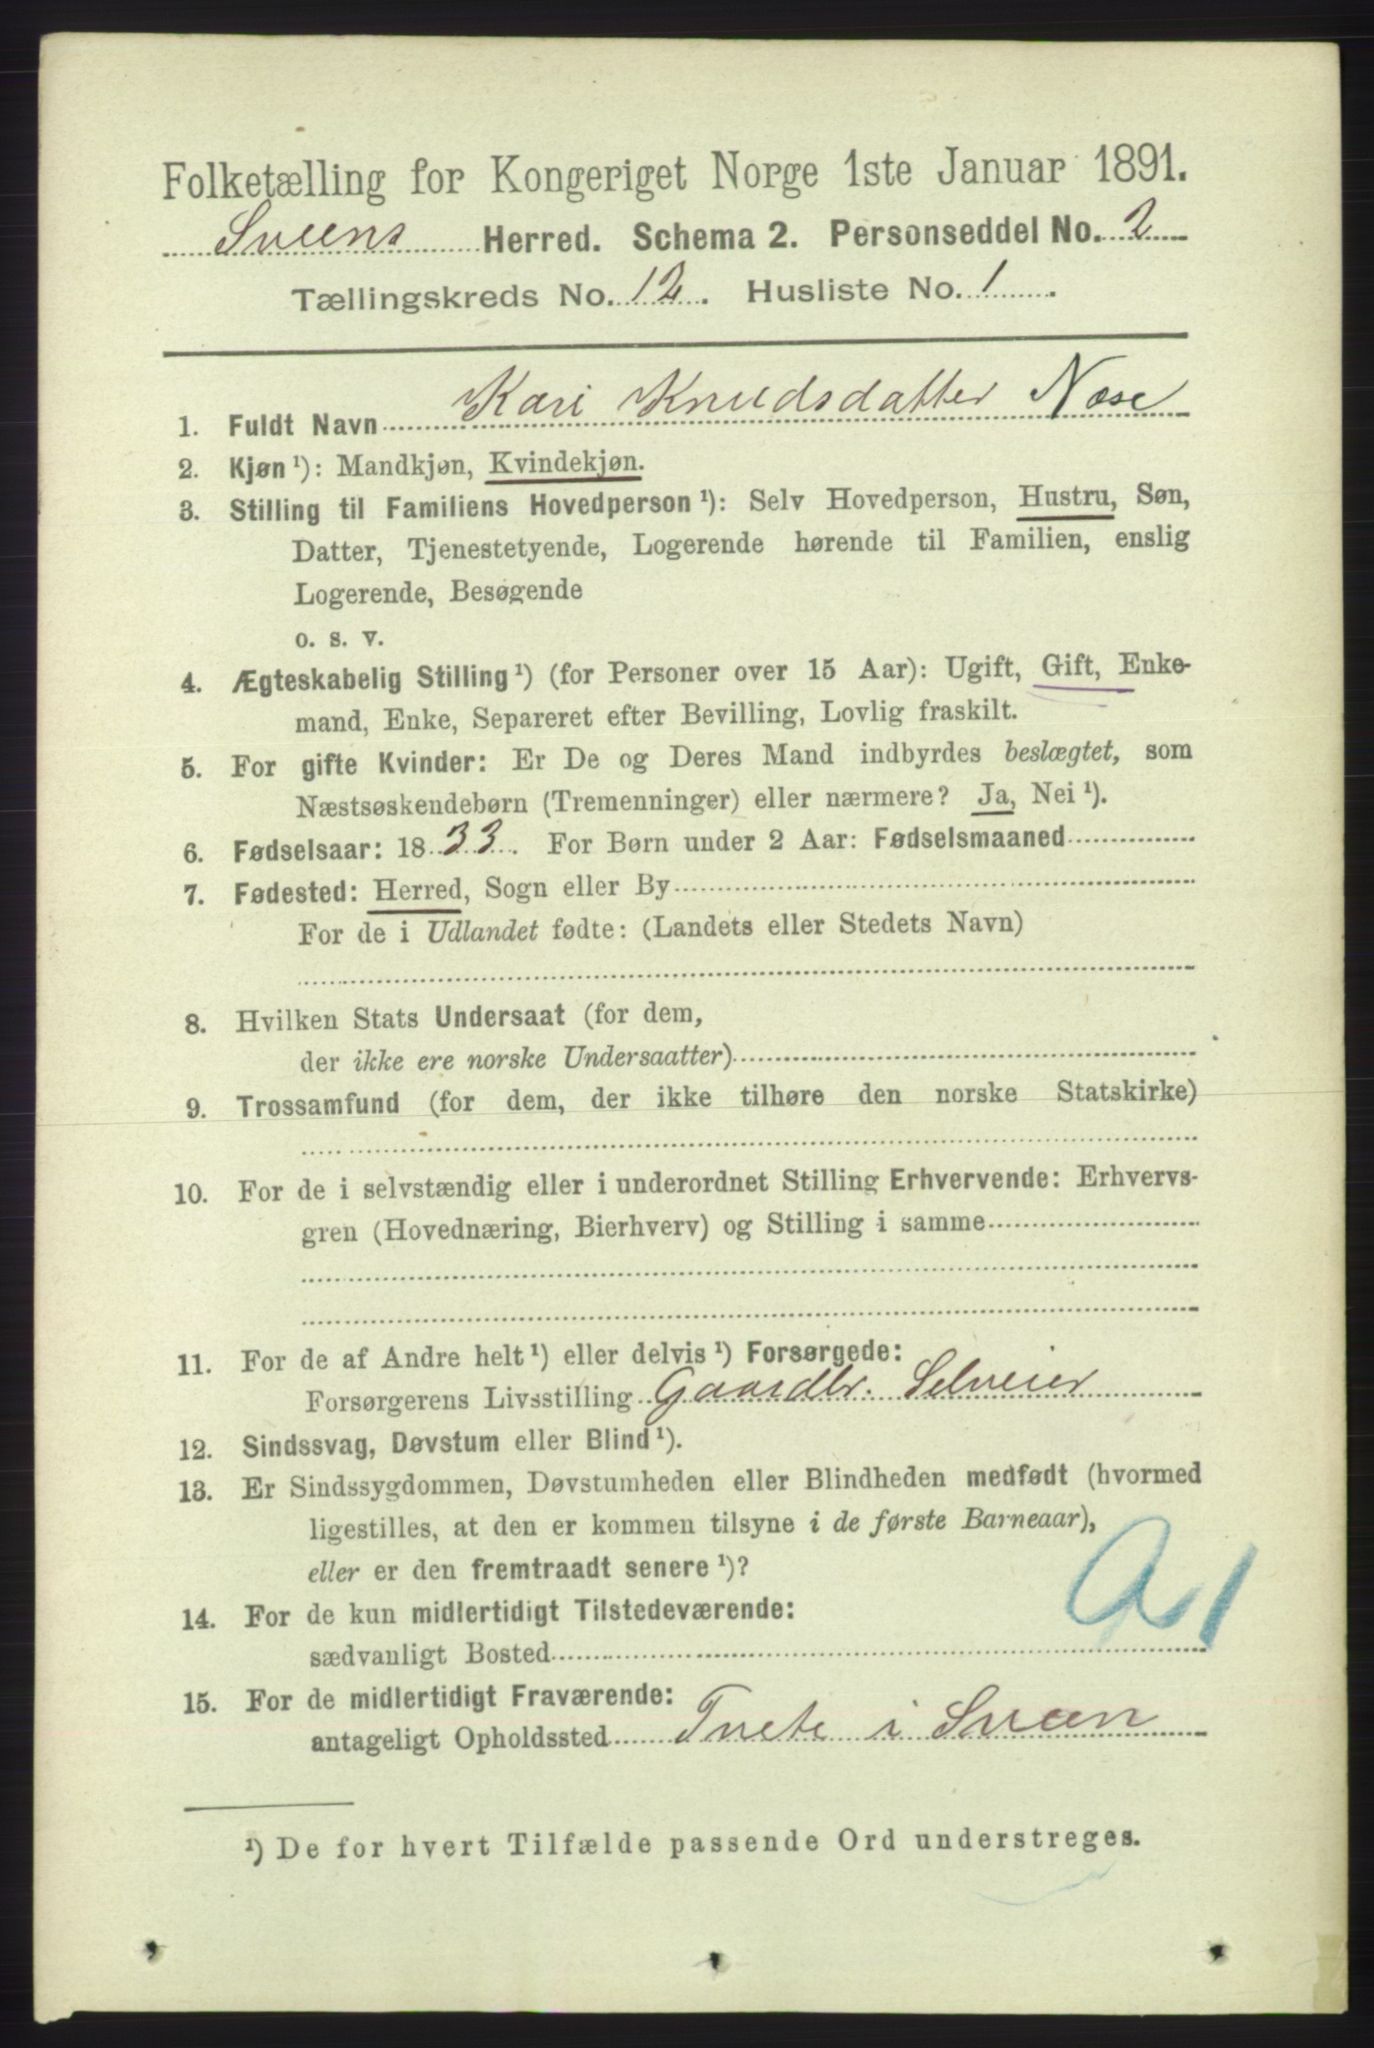 Folketælling for Kongeriget Norge 1ste Januar 1891.
Sveens Herred. Schema 2. Personseddel No. 2
Tællingskreds No. 12. Husliste No. 1.
1. Fuldt Navn Kari Knudsdatter Næse
2. Kjøn ¹): Mandkjøn, Kvindekjøn.
3. Stilling til Familiens Hovedperson ¹): Selv Hovedperson, Hustru, Søn,
Datter, Tjenestetyende, Logerende hørende til Familien, enslig
Logerende, Besøgende
o. s. v.
4. Ægteskabelig Stilling ¹) (for Personer over 15 Aar): Ugift, Gift, Enke-
mand, Enke, Separeret efter Bevilling, Lovlig fraskilt.
5. For gifte Kvinder: Er De og Deres Mand indbyrdes beslægtet, som
Næstsøskendebørn (Tremenninger) eller nærmere? Ja, Nei ¹).
6. Fødselsaar: 1833. For Børn under 2 Aar: Fødselsmaaned
7. Fødested: Herred, Sogn eller By
For de i Udlandet fødte: (Landets eller Stedets Navn)
8. Hvilken Stats Undersaat (for dem,
der ikke ere norske Undersaatter)
9. Trossamfund (for dem, der ikke tilhøre den norske Statskirke)
10. For de i selvstændig eller i underordnet Stilling Erhvervende: Erhvervs-
gren (Hovednæring, Bierhverv) og Stilling i samme
11. For de af Andre helt ¹) eller delvis ¹) Forsørgede:
Forsørgerens Livsstilling Gaardbr. Selveier
12. Sindssvag, Døvstum eller Blind ¹).
13. Er Sindssygdommen, Døvstumheden eller Blindheden medfødt (hvormed
ligestilles, at den er kommen tilsyne i de første Barneaar),
eller er den fremtraadt senere ¹)?
14. For de kun midlertidigt Tilstedeværende:
sædvanligt Bosted
15. For de midlertidigt Fraværende:
antageligt Opholdssted Tvete i Sveen
¹) De for hvert Tilfælde passende Ord understreges.